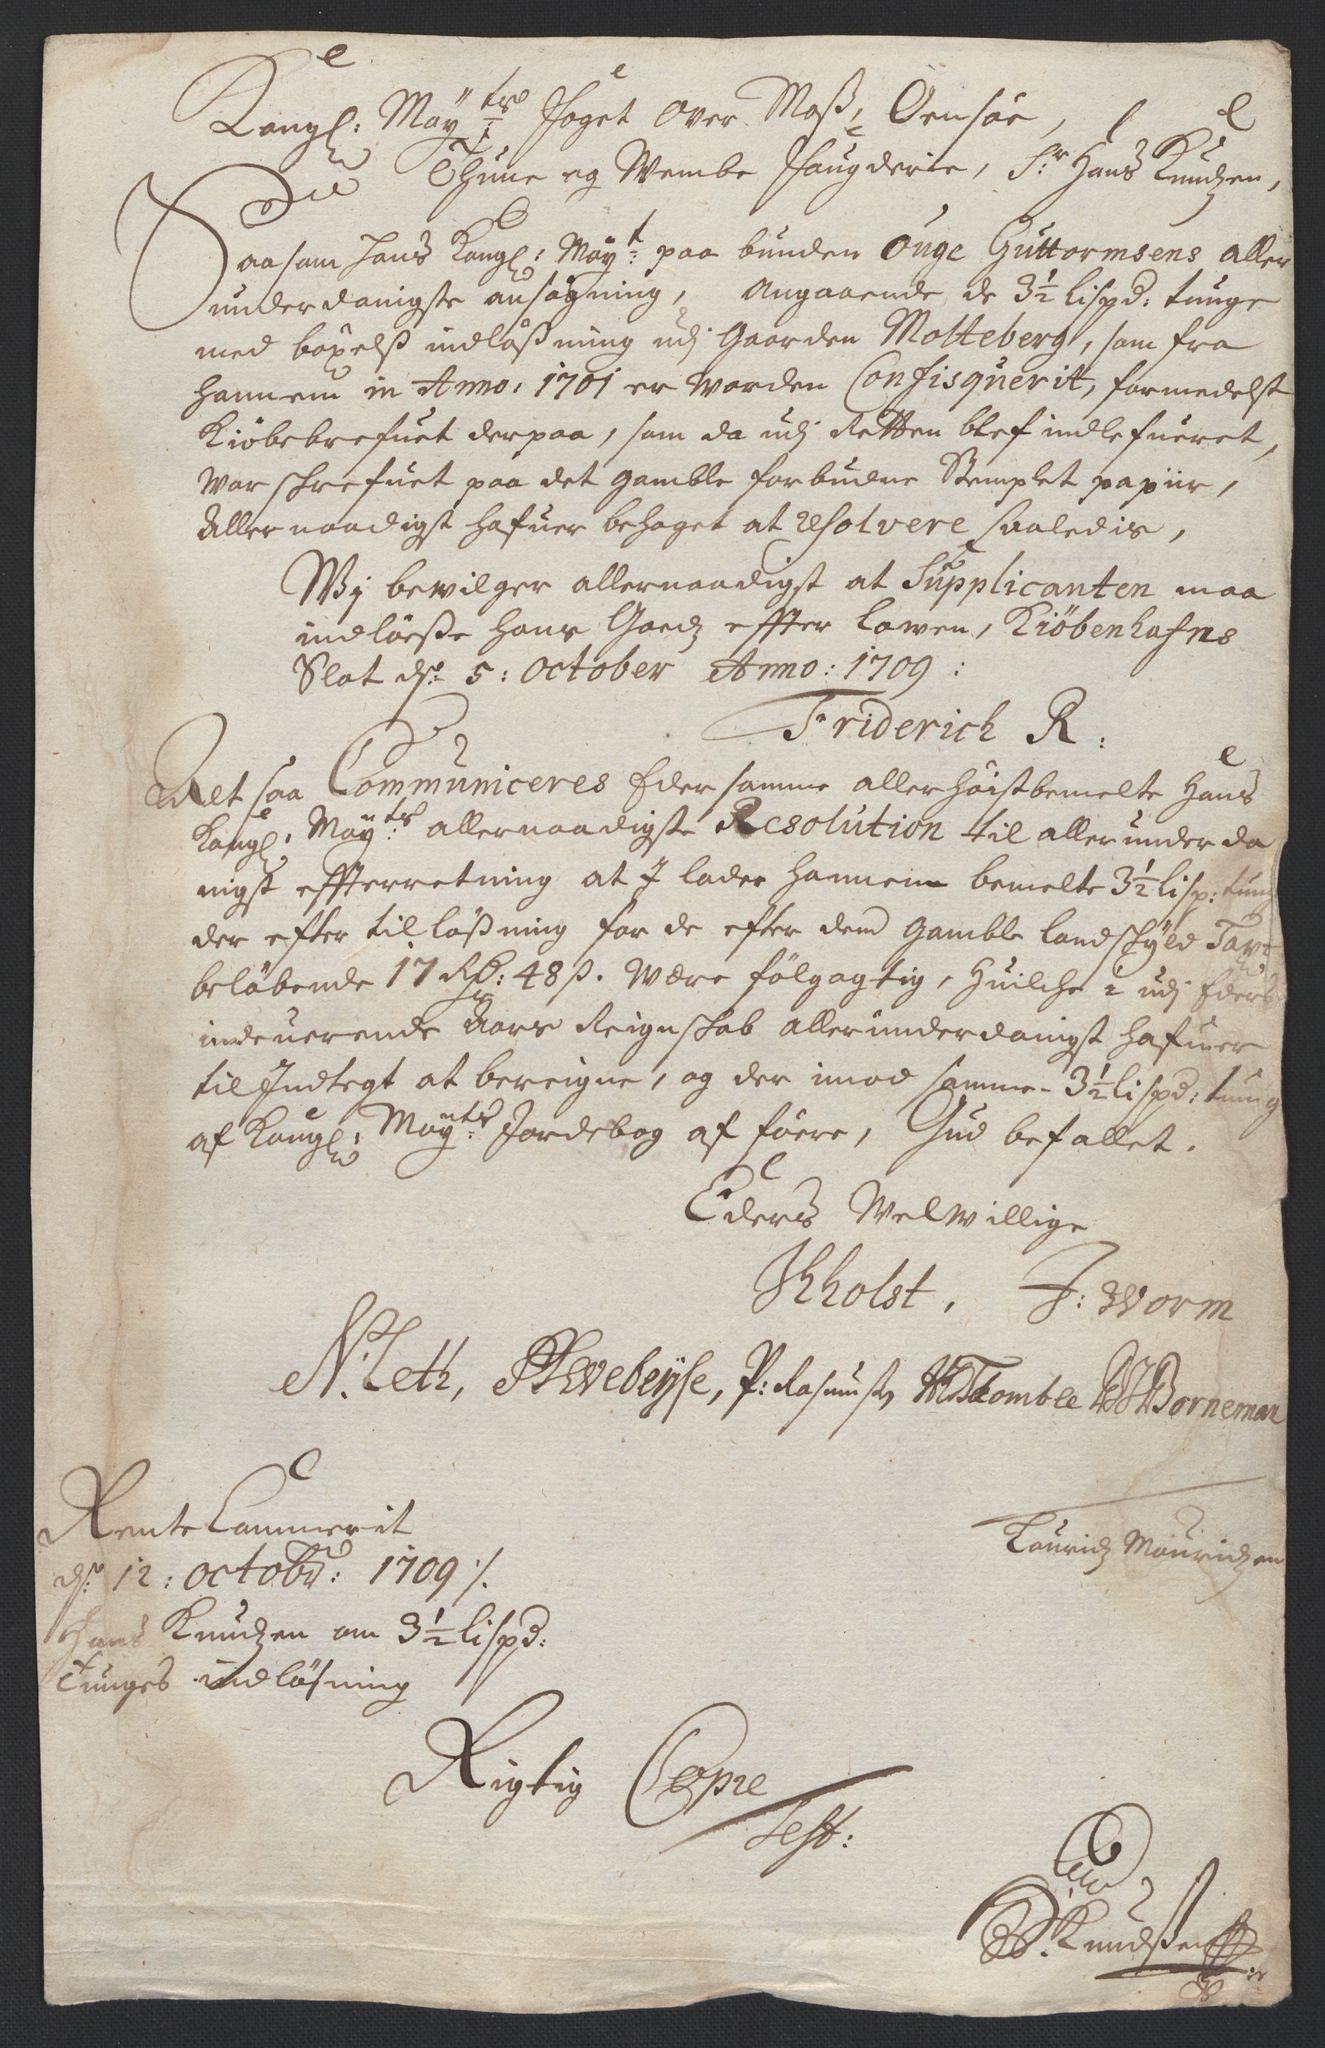 Kongl: May:ts Foget Over Moss, Oensøe,
Thune og Wembe Fougderie, Sr: Hans Knudzen,
Saasom Hans Kongl: May:t paa bunden Ouge Guttormsens aller
underdanigste ansøgning, Angaaende de 3½ Lispd: tunge
med böxelss indlössning udj Gaarden Molteberg, som fra
hannem in Anno: 1701 er worden Confisquerit, formedelst
Kiöbebrefuet derpaa, som da udj Retten blef indlefueret,
war schrefuet paa det gamble forbudne Stemplet papiir,
Allernaadigst hafuer behaget at resolvere saaledis,
Wj bevilger allernaadigst at Supplicanten maa
indlöesse hans Goedz effter Lowen, Kiöbenhafns
Slot ds: 5: October Anno: 1709:
Friderich R:
Alt saa Communiceres Eder samme allerhöistbemelte Hans
Kongl: May:ts allernaadigste Resolution til allerunderda
nigst effterretning at I lader hannem bemelte 3½ Lisp: tung
der efter tillössning for de efter dend gamble Landskyld Taxt
belöbende 17 Rdr: 48 s. Være fölgagtig, Huilche i udj Eders
indeverende Aars Reignschab allerunderdanigst hafuer
til Indtegt at bereigne, og der imod samme 3½ Lispd: tung
af Kongl: May:ts Jordebog af föere, Gud befallet.
Eders Velwillige
Hholst, J: Worm
N. Leth, Webeyse, P: Rasmussen Tromble Borneman
Lauridz Mouridzen
Rente Cammerit
ds: 12: octobr: 1709 ./.
Hans Knudzen om 3½ Lispd:
Tunges indlösning
Rigtig Copie
Test:
H. Knudssen